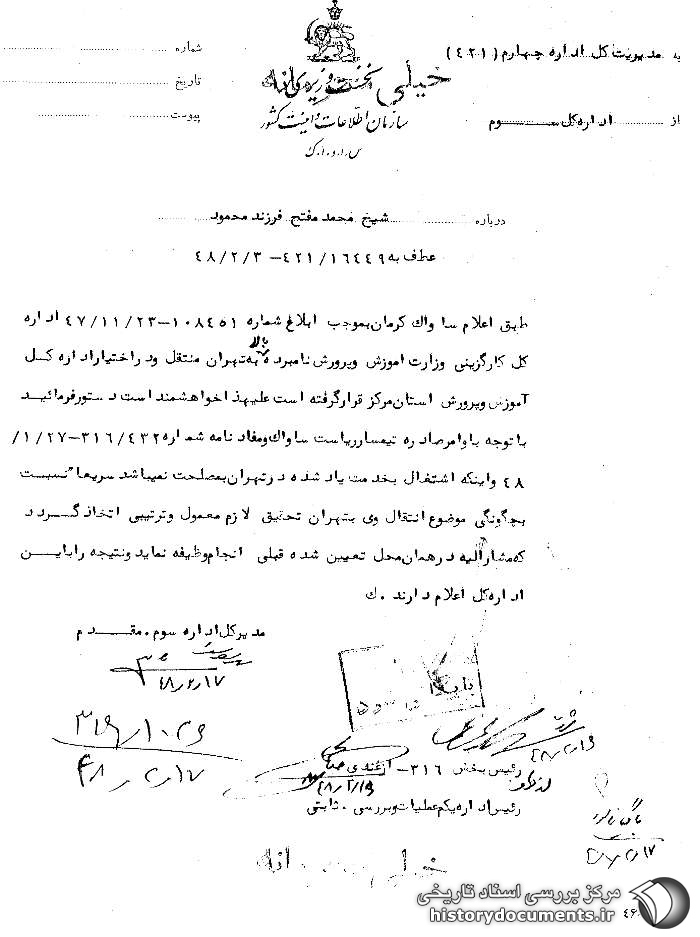 به مدیریت کل اداره چهارم (۴۲۱)
از اداره کل سوم
شماره
تاریخ
پیوست
نخست وزیری
خیلی محرمانه
سازمان اطلاعات و امنیت کشور
س.ا.و.ا.ک
درباره شیخ محمد مفتح فرزند محمود
عطف به ۴۲۱/۱۶۴۴۹-۴۸/۲/۳
طبق اعلام ساواک کرمان بموجب ابلاغ شماره ۱۰۸۴۵۱-۴۷/۱۱/۲۳ اداره
کل کارگزینی وزارت اموزش وپرورش نامبرده بالا به تهران منتقل ودراختیاراداره کل
آموزش وپرورش استان مرکز قرارگرفته است علیهذا خواهشمند است دستورفرمائید
باتوجه باوامرصادره تیمسارریاست ساواک ومفاد نامه شماره ۳۱۶/۴۳۲-۱/۲۷/
۴۸ واینکه اشتغال بخدمت یادشده درتهران بمصلحت نمیباشد سریعا" نسبت
بچگونگی موضوع انتقال وی بتهران تحقیق لازم معمول وترتیبی اتخاذ گردد
که مشارالیه درهمان محل تعیین شده قبلی انجام وظیفه نماید ونتیجه راباین
اداره کل اعلام دارند . ک
مدیرکل اداره سوم . مقدم
۴۸/۲/۱۷
۳۱۶/۱۰۲۶
۴۸/۲/۱۷
۴۸/۲/۱۶
رئیس بخش ۳۱۶- ازغندی
۴۸/۲/۱۶
رئیس اداره یکم عملیات وبررسی . ثابتی
خیلی محرمانه
مرکز بررسی اسناد تاریخی
historydocuments.ir